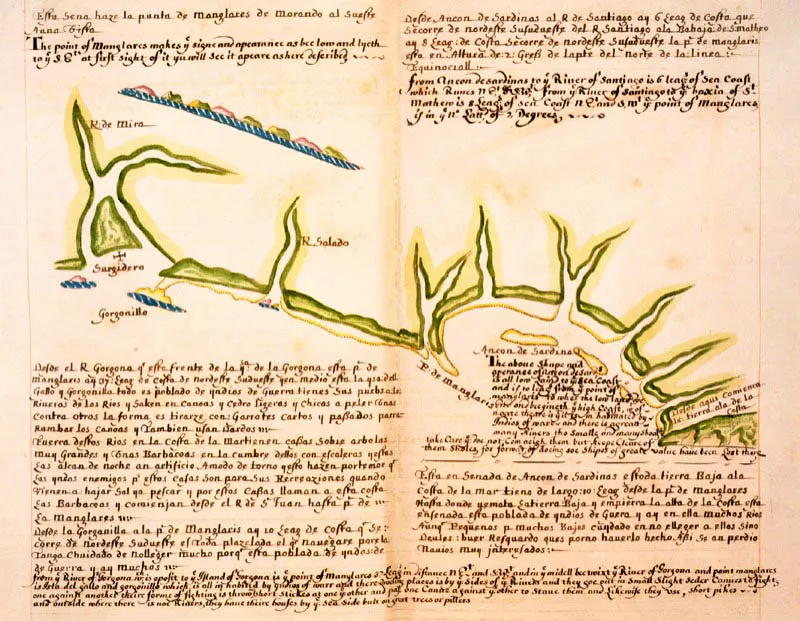 Esta Sena haze la punta de Manglares de Morando al Sueste
The point of Manglares makes yᵉ signe and apearance as bee low and lyeth
to yᵉ S. Eᵗ at first sight of it yu will see it apeare as here described
Desde Ancon de Sardinas al R de Santiago ay 6 Leag de Costa que
Secorre de nordeste Sudueste del R Santiago ala Bahaja de Sᵗ matheo
ay 8 Leag: de Costa Secorre de nordeste Susudueste la pᵗᵃ de manglaris
esta en Altura de 2: Greß de la pte del norte de la linea
Equinociall
from Ancon de Sardinas to yᵉ River of Santiago is 6 leag of Sea Coast
which Runes from yᵉ River of Santiago to yᵉ baxia of Sᵗ
Mathew is 8 Leag of Sea Coast N E and S Wᵗ yᵉ point of Manglares
is in yᵉ Nᵒ Latt of 2 Degrees
R de Mira
Surgidero
Gorgonillo
R Salado
P. de Manglares
Ancon de Sardina
The above Shape and
aperance of Ancon de Sardinas
is all low land to yᵉ Sea Coast
many Rivers tho Smalle and many shoales
take Care yᵉ doe not Com neigh them but Keepe Cleare of
them Sholes for for want of doeing soe Ships of great value have been Lost there
Desde aqui Comienca
le tierra alta de la
Costa
Desde el R Gorgona qᵉ esta frente de la yᵃ de la Gorgona esta pᵗᵃ de
manglaris ay 37: Leag de Costa de nordeste Sudueste yen medio esta la ysa del
Gallo y Gorgonilla todo es poblado de yndios de Guerra tienes Sus pueblos a las
Riueras de Los Rios y Salen en Canoas y Cedro ligeras y Chicas a pelear Unas
Contra otros la forma es tirarze con Garrotes Cortos y
Rumbar los Canoas y Tambien usan Dardos
Fuerra destos Rios en la Costa de la Mar tienen Caßas Sobre arbolas
Muy Grandes y Unas Barbacoas en la Cumbre dellos con escaleras y estas
Las alcan de noche an artificio Amodo de torno y esto hazen por temor qᵉ
Las yndos enemigos pᵒ estos Casas Son para Sus Recreaciones quando
Vienen a bajar Sal ya pescar y por estos Caßas llaman a esta Costa
Las Barbacoas y Comienjan desde el R de Sᵗ Juan hasta pᵗᵃ de
La Manglares
Desde la Gorgonilla a la pᵗᵃ de Manglaris ay 10 Leag de Costa qᵉ Se
Corre de nordeste Sudueste es Toda plazelada el qᵉ navegare por la
Tanga Chuidado de nolleger mucho porqᵉ esta poblada de yndos de
de Guerra y ay muchos
Esta en Senada de Ancon de Sardinas es toda tierra Baja ala
Costa de la mar tieno de largo: 10 Leag desde la pᵗᵃ de Manglares
Hasta donde remata la tierra Baja y empiezza la alta de la Costa esta
ensenada es poblada de yndios de Guerra y ay en ella muchos Rios
Aunqᵉ Pequenos pᵒ muchos Bajos Cuydado en no elleger a ellos Sino
Deules: buer Resguardo ques porno hauerlo hecho Aßi Se an perdio
Nauios muy interesados:
from yᵉ River of Gorgona wᶜʰ is oposit to yᵉ Island of Gorgona is yᵉ point of manglares 37 Leag in distance and in yᵉ midell betwixt yᵉ River of Gorgona and point manglares
is Isla del gallo and gorgonillo which is all in habited by Indios of warr and there dwelling places is by yᵉ sides of yᵉ Rivers and they goe out in Small Slight Seder Canues to fight
one against another theire forme of fighting is throw short Stickes at one yᵉ other and put one Canue against yᵉ other to Stave them and Likewise they use, short pikes
and outside where there is not Rivers, they have theire houses by yᵉ Sea Side built on great trees or pillers